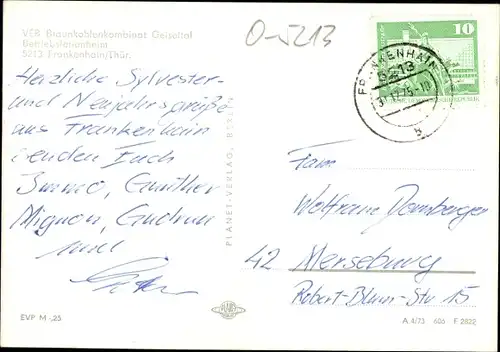 VEB Braunkohlenkombinat Geiseltal
Betriebsferienheim
5213 Frankenhain/Thür.
O-5213
10
FRANKENHAIN
5213
31.12.75-10
b
Herzliche Sylvester-
und Neujahrsgrüße
aus Frankenhain
senden Euch
Immo, Günther
Mignon, Gudrun
und
PLANET-VERLAG, BERLIN
Fam.
Wolfram Domberger
42 Merseburg
Robert-Blum-Str 15
EVP M -,25
A 4/73 606 F 2822